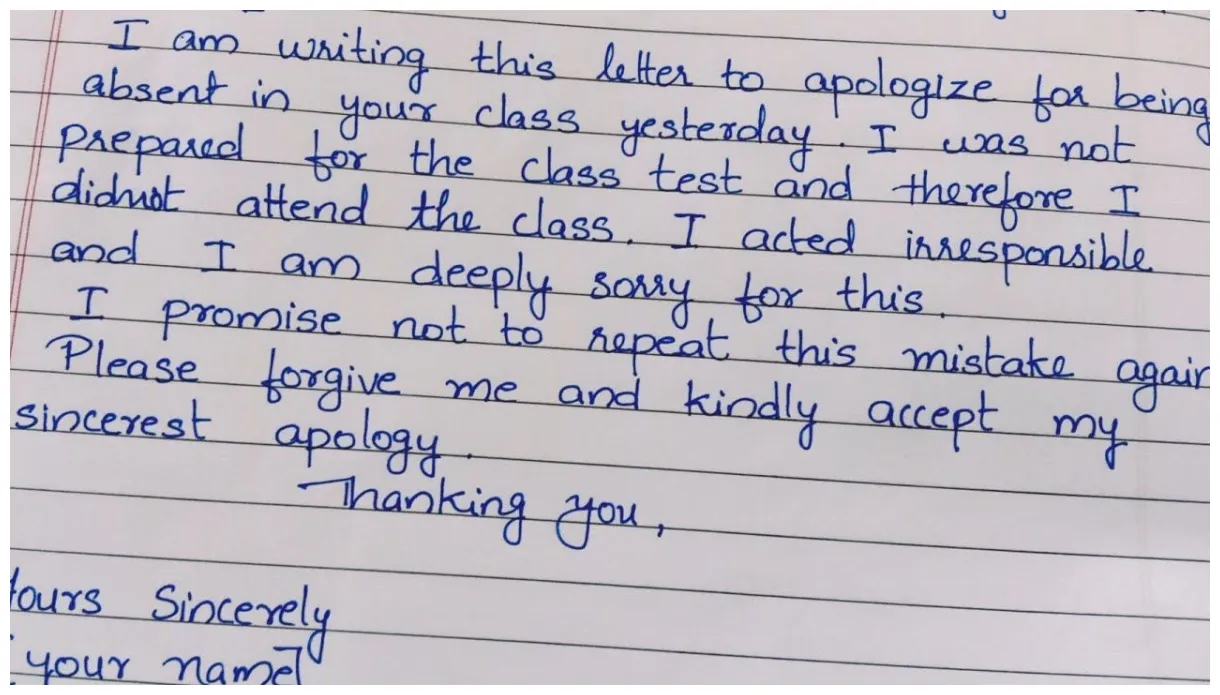 I am writing this letter to apologize for being
absent in your class yesterday. I was not
prepared for the class test and therefore I
didnot attend the class. I acted irresponsible
and I am deeply sorry for this.
I promise not to repeat this mistake again
Please forgive me and kindly accept my
sincerest apology.
Thanking you,
Yours Sincerely
your name